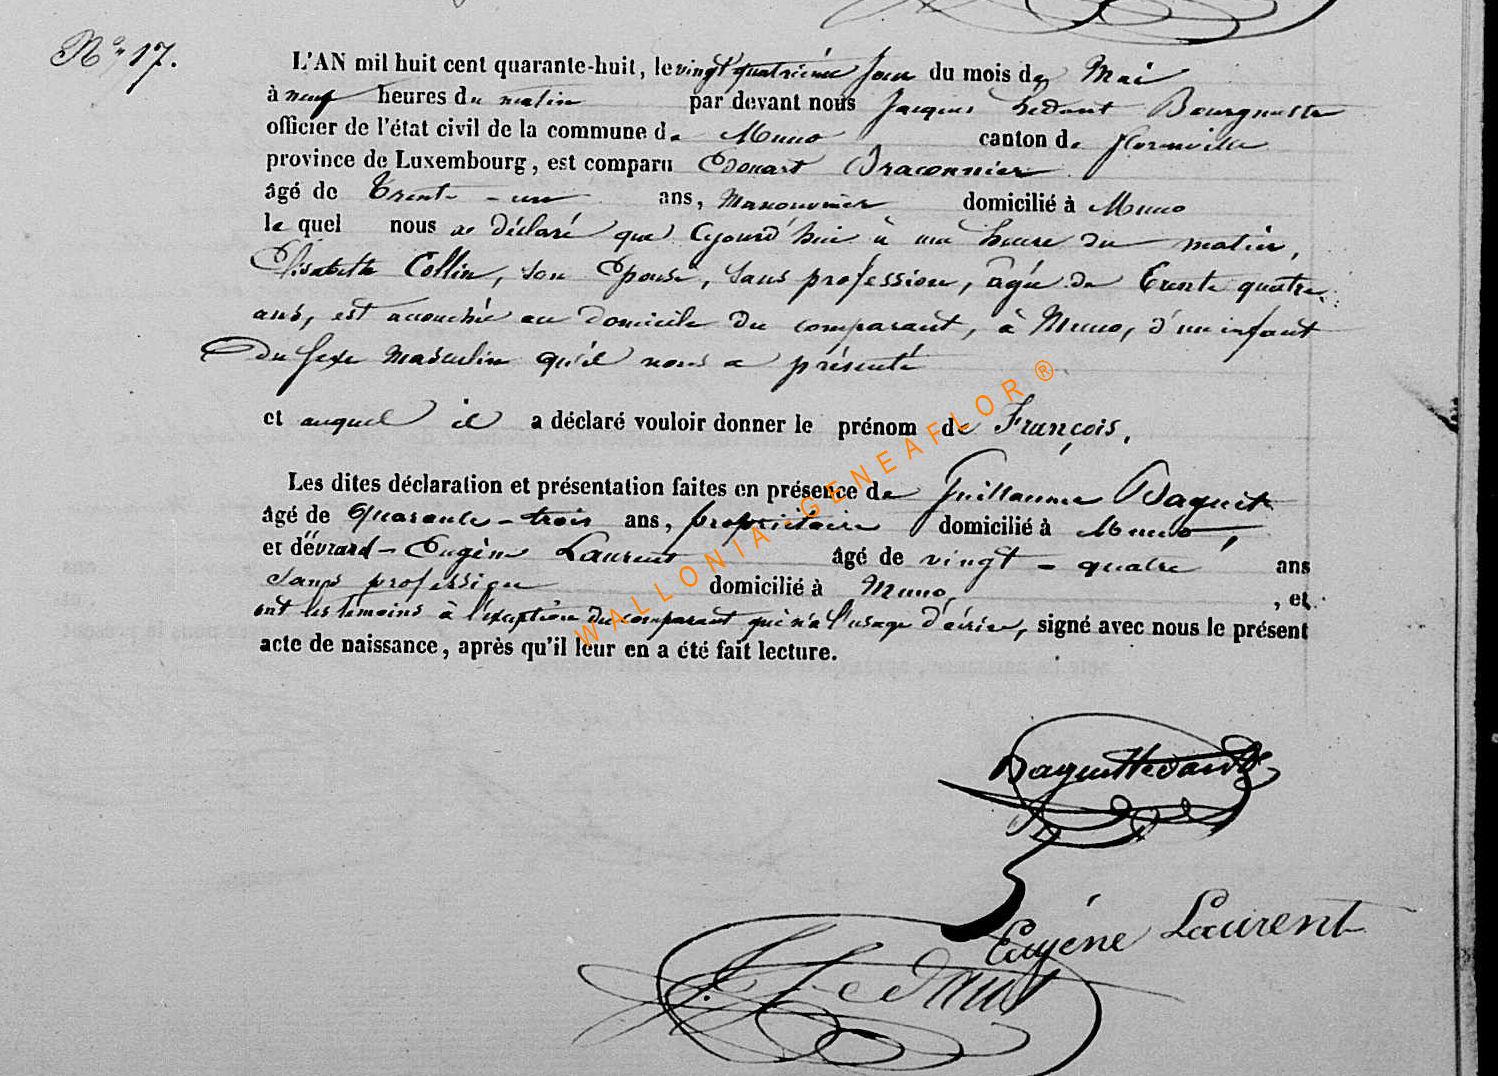 No 17.
L'AN mil huit cent quarante-huit, le vingt quatrième jour du mois de Mai
à neuf heures du matin par devant nous Jacques Hedant Bourgmestre
officier de l'état civil de la commune de Muno canton de florenville
province de Luxembourg, est comparu Edouart Braconnier
âgé de Trente-un ans, Manouvrier domicilié à Muno
le quel nous a déclaré que Cejourd'hui à une heure du matin,
Elisabeth Collin, son Epouse, sans profession, âgée de Trente quatre
ans, est accouchée au domicile du comparant, à Muno, d'un enfant
du sexe Masculin qu'il nous a présenté
et auquel il a déclaré vouloir donner le prénom de François,
Les dites déclaration et présentation faites en présence de Guillaume Daquit
âgé de Quarante-trois ans, propriétaire domicilié à Muno,
et d'évrard-Eugène Laurent âgé de vingt-quatre ans
sans profession domicilié à Muno, , et
ont les témoins à l'exception du comparant qui n'a l'usage d'écrire, signé avec nous le présent
acte de naissance, après qu'il leur en a été fait lecture.
WALLONIA-GENEAFLOR®
Eugéne Laurent